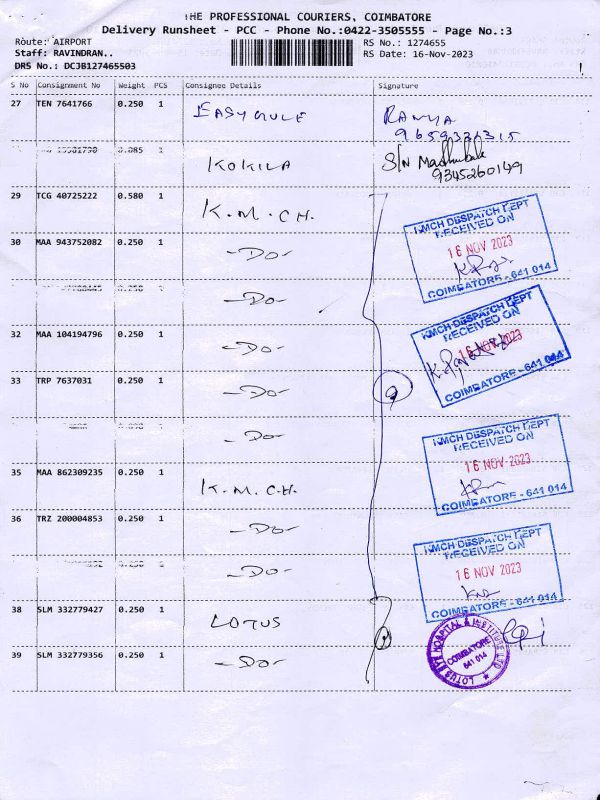 THE PROFESSIONAL COURIERS, COIMBATORE
Delivery Runsheet - PCC - Phone No.:0422-3505555 - Page No.:3
Route: AIRPORT
Staff: RAVINDRAN..
DRS No.: DCJB127465503
RS No.: 1274655
RS Date: 16-Nov-2023
S No Consignment No Weight PCS Consignee Details Signature
27 TEN 7641766 0.250 1 EASYGULF RAMYA
0.085 1 KOKILA S/N Madhubala
9345260149
29 TCG 40725222 0.580 1 K.M.CH.
30 MAA 943752082 0.250 1 -Do-
-Do-
32 MAA 104194796 0.250 1 -Do-
33 TRP 7637031 0.250 1 -Do-
-Do-
35 MAA 862309235 0.250 1 K.M.C.H.
36 TRZ 200004853 0.250 1 -Do-
-Do-
38 SLM 332779427 0.250 1 LOTUS
39 SLM 332779356 0.250 1 -Do-
KMCH DESPATCH DEPT
RECEIVED ON
16 NOV 2023
COIMBATORE - 641 014
KMCH DESPATCH DEPT
RECEIVED ON
16 NOV 2023
COIMBATORE - 641 014
KMCH DESPATCH DEPT
RECEIVED ON
16 NOV 2023
COIMBATORE - 641 014
KMCH DESPATCH DEPT
RECEIVED ON
16 NOV 2023
COIMBATORE - 641 014
LOTUS EYE HOSPITAL & INSTITUTE LTD
COIMBATORE
641 014